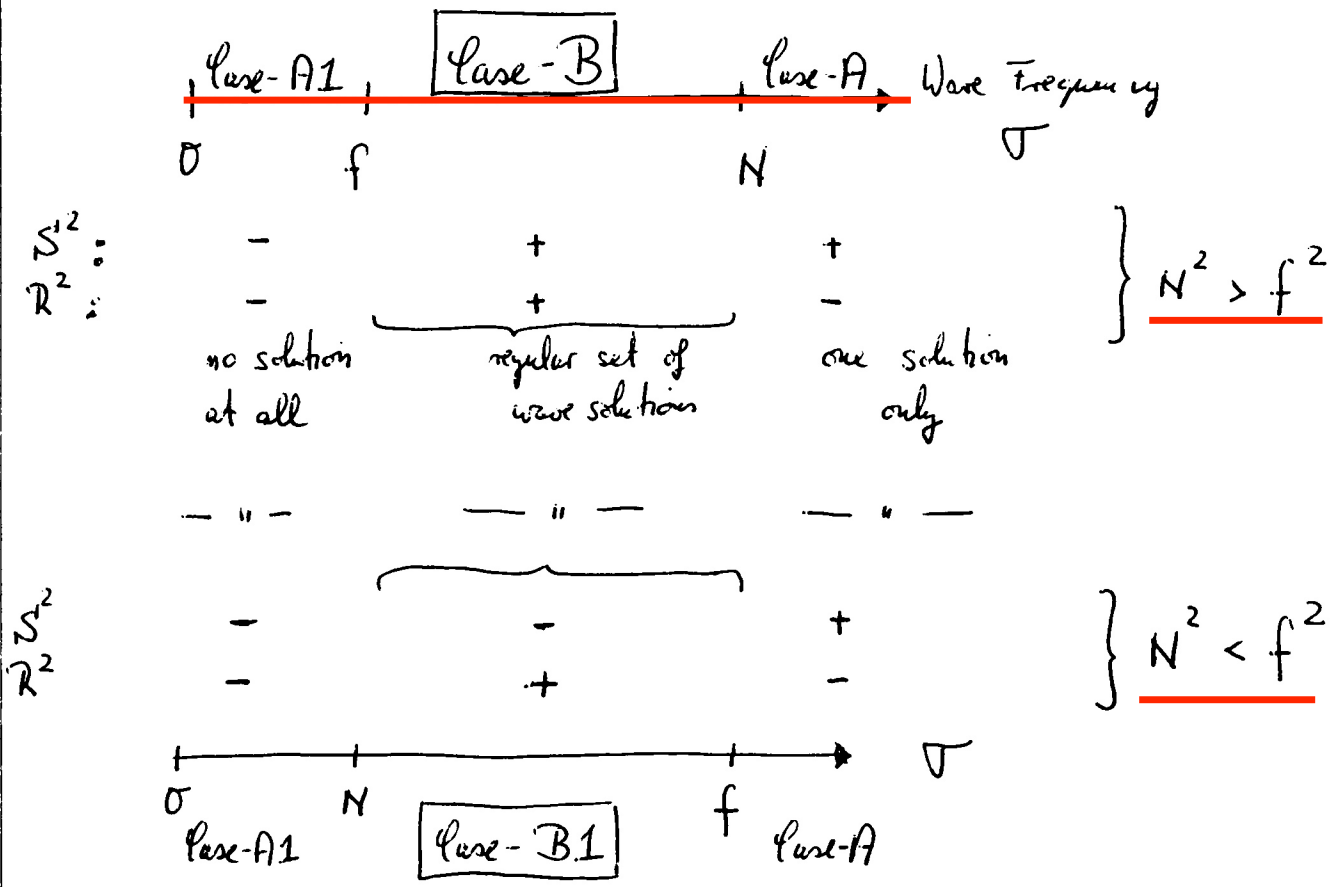 Case-A1 Case-B Case-A Wave Frequency
0 f N σ
S²: - + +
R²: - + - } N² > f²
no solution regular set of one solution
at all wave solutions only
— " — — " — — " —
S² - - +
R² - + - } N² < f²
0 N f σ
Case-A1 Case-B.1 Case-A